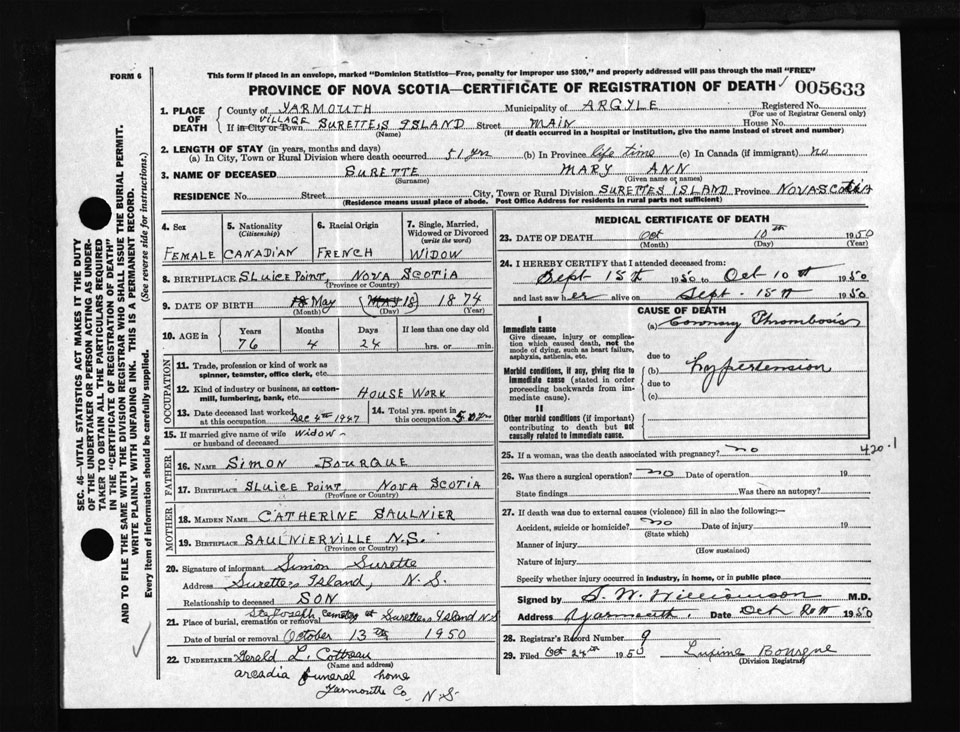 FORM 6
This form if placed in an envelope, marked "Dominion Statistics—Free, penalty for improper use $300," and properly addressed will pass through the mail "FREE"
PROVINCE OF NOVA SCOTIA—CERTIFICATE OF REGISTRATION OF DEATH 005633
1. PLACE OF DEATH
County of YARMOUTH Municipality of ARGYLE Registered No.
(For use of Registrar General only)
VILLAGE
If in City or Town SURETTE'S ISLAND Street MAIN House No.
(Name) (If death occurred in a hospital or institution, give the name instead of street and number)
2. LENGTH OF STAY (in years, months and days)
(a) In City, Town or Rural Division where death occurred 51 yrs (b) In Province life time (c) In Canada (if immigrant) no
3. NAME OF DECEASED SURETTE MARY ANN
(Surname) (Given name or names)
RESIDENCE No. Street City, Town or Rural Division SURETTES ISLAND Province NOVA SCOTIA
(Residence means usual place of abode. Post Office Address for residents in rural parts not sufficient)
4. Sex 5. Nationality (Citizenship) 6. Racial Origin 7. Single, Married, Widowed or Divorced (write the word)
FEMALE CANADIAN FRENCH WIDOW
8. BIRTHPLACE SLUICE POINT, NOVA SCOTIA
(Province or Country)
9. DATE OF BIRTH 18 May (MAY 18) 1874
(Month) (Day) (Year)
10. AGE in Years Months Days If less than one day old
76 4 24 hrs. or min.
OCCUPATION
11. Trade, profession or kind of work as spinner, teamster, office clerk, etc.
12. Kind of industry or business, as cotton-mill, lumbering, bank, etc. HOUSE WORK
13. Date deceased last worked at this occupation Dec 4th 1947 14. Total yrs. spent in this occupation 50 yrs
15. If married give name of wife or husband of deceased widow
FATHER
16. NAME SIMON BOURQUE
17. BIRTHPLACE SLUICE POINT, NOVA SCOTIA
(Province or Country)
MOTHER
18. MAIDEN NAME CATHERINE SAULNIER
19. BIRTHPLACE SAULNIERVILLE N.S.
(Province or Country)
20. Signature of informant Simon Surette
Address Surettes Island, N.S.
Relationship to deceased SON
21. Place of burial, cremation or removal St Joseph cemetery at Surettes Island N.S
Date of burial or removal October 13th 1950
22. UNDERTAKER Gerald L. Cottreau
(Name and address)
arcadia funeral home
Yarmouth Co. N.S.
MEDICAL CERTIFICATE OF DEATH
23. DATE OF DEATH Oct 10th 1950
(Month) (Day) (Year)
24. I HEREBY CERTIFY that I attended deceased from:
Sept 15th 1950 to Oct 10th 1950
and last saw her alive on Sept. 15th 1950
CAUSE OF DEATH
I
Immediate cause
Give disease, injury or complication which caused death, not the mode of dying, such as heart failure, asphyxia, asthenia, etc.
(a) Coronary Thrombosis
due to
Morbid conditions, if any, giving rise to immediate cause (stated in order proceeding backwards from immediate cause).
(b) Hypertension
due to
(c)
II
Other morbid conditions (if important) contributing to death but not causally related to immediate cause.
25. If a woman, was the death associated with pregnancy? no 420.1
26. Was there a surgical operation? no Date of operation 19
State findings Was there an autopsy?
27. If death was due to external causes (violence) fill in also the following:—
Accident, suicide or homicide? no Date of injury 19
(State which)
Manner of injury
(How sustained)
Nature of injury
Specify whether injury occurred in industry, in home, or in public place
Signed by S. W. Williamson M.D.
Address Yarmouth. Date Oct 20th 1950
28. Registrar's Record Number 9
29. Filed Oct 24th 1950 Bourque
(Division Registrar)
SEC. 46—VITAL STATISTICS ACT MAKES IT THE DUTY
OF THE UNDERTAKER OR PERSON ACTING AS UNDER-
TAKER TO OBTAIN ALL THE PARTICULARS REQUIRED
IN THE "CERTIFICATE OF REGISTRATION OF DEATH"
AND TO FILE THE SAME WITH THE DIVISION REGISTRAR WHO SHALL ISSUE THE BURIAL PERMIT.
WRITE PLAINLY WITH UNFADING INK. THIS IS A PERMANENT RECORD.
Every item of information should be carefully supplied. (See reverse side for instructions.)